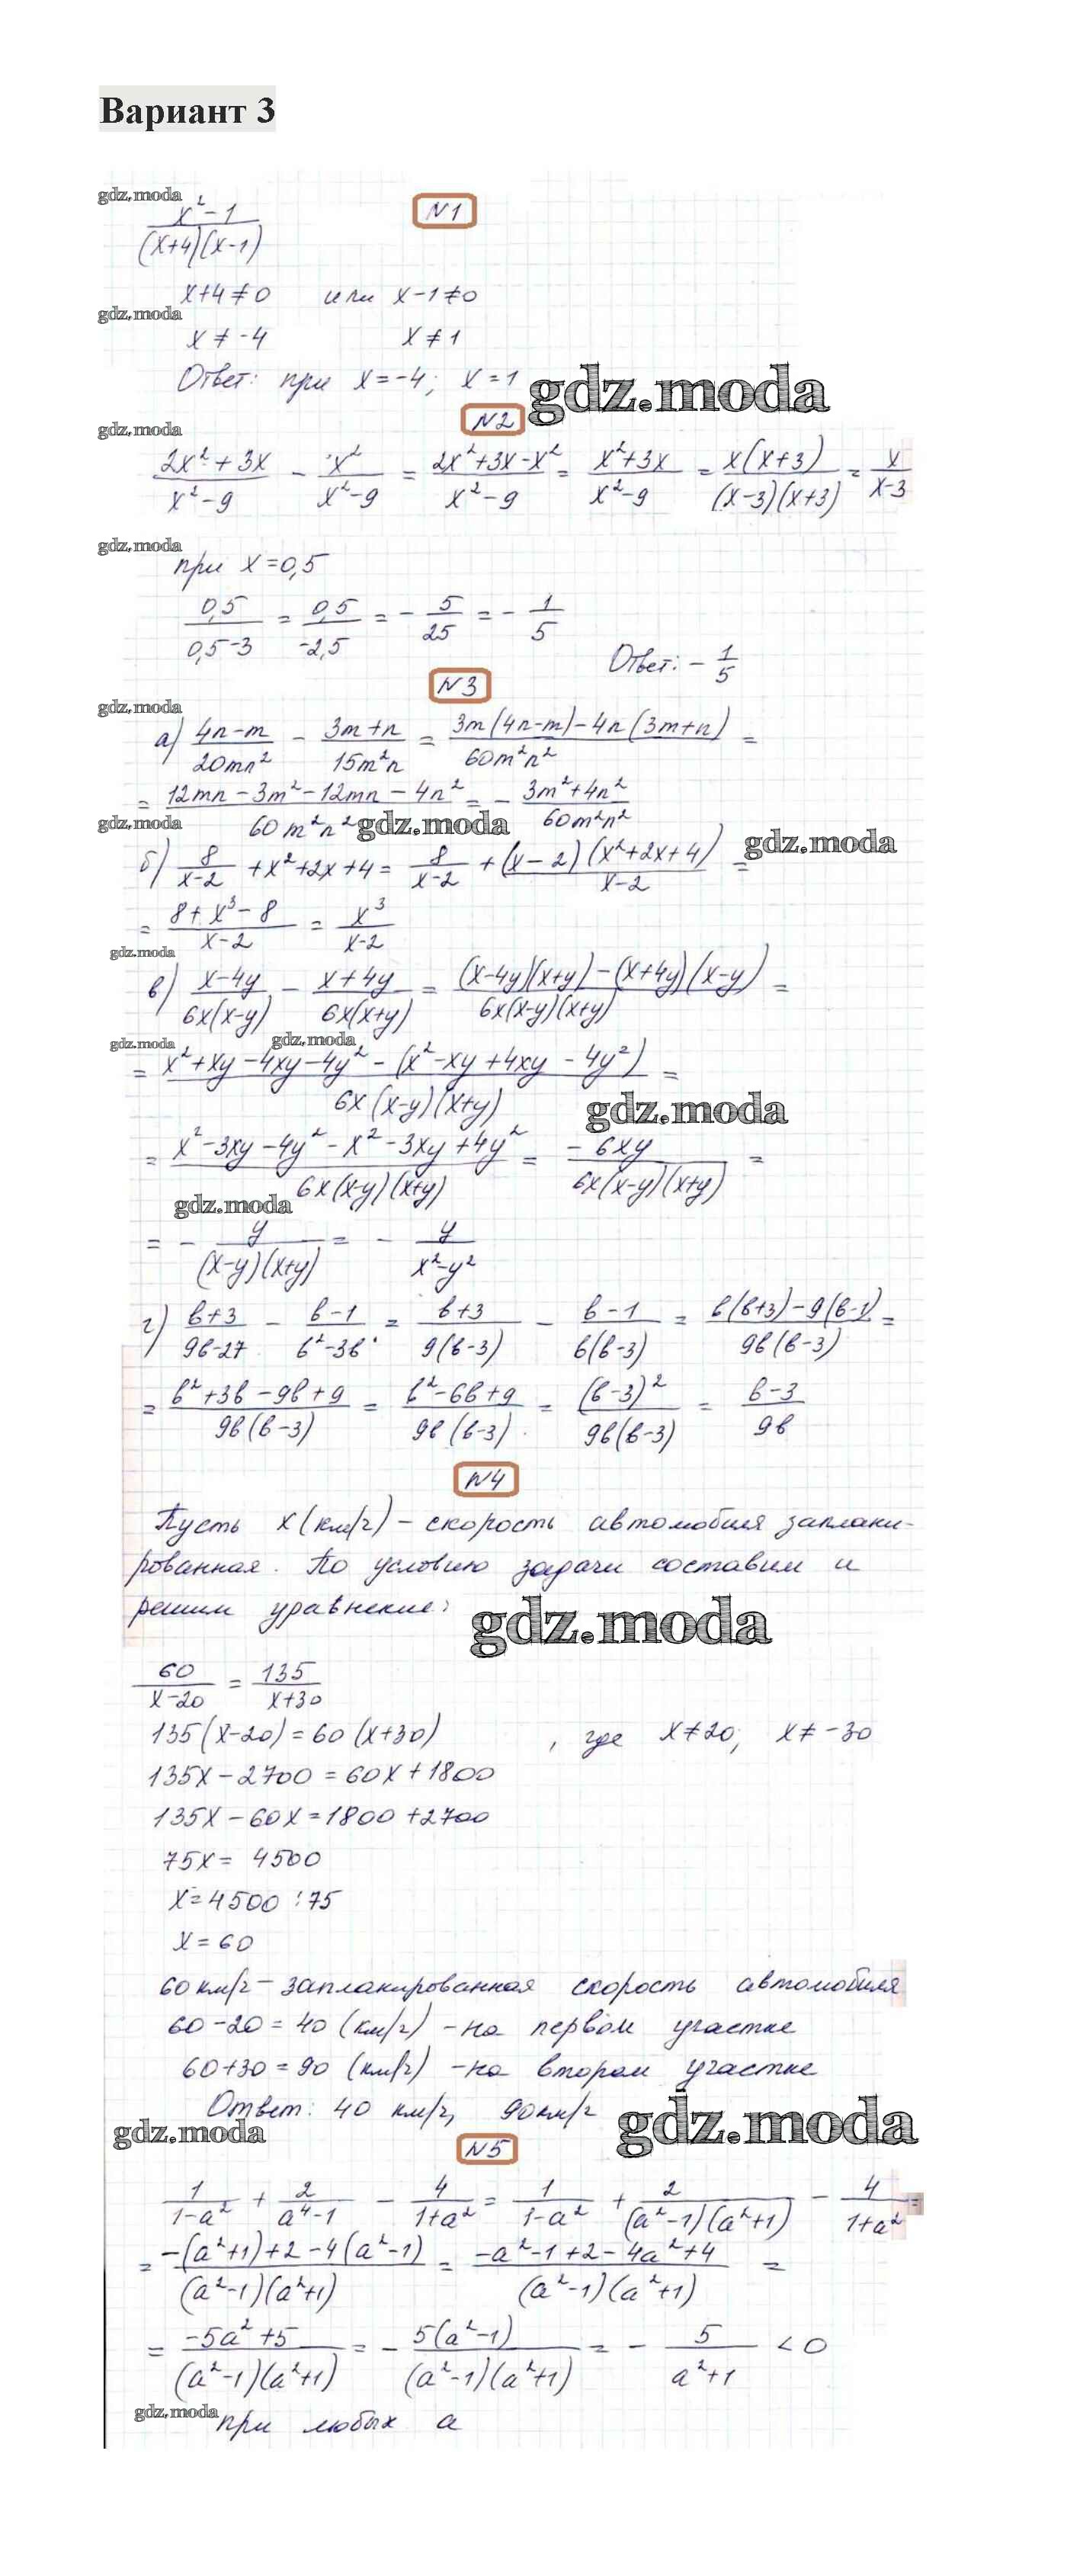 Вариант 3
gdz.moda
№1
(x²-1)/((x+4)(x-1))
x+4≠0 или x-1≠0
gdz.moda
x≠-4 x≠1
Ответ: при x=-4; x=1 gdz.moda
№2
gdz.moda
(2x²+3x)/(x²-9) - x²/(x²-9) = (2x²+3x-x²)/(x²-9) = (x²+3x)/(x²-9) = x(x+3)/((x-3)(x+3)) = x/(x-3)
gdz.moda
при x=0,5
0,5/(0,5-3) = 0,5/(-2,5) = -5/25 = -1/5
Ответ: -1/5
№3
gdz.moda
а) (4n-m)/(20mn²) - (3m+n)/(15m²n) = (3m(4n-m)-4n(3m+n))/(60m²n²) =
= (12mn-3m²-12mn-4n²)/(60m²n²) = -(3m²+4n²)/(60m²n²)
gdz.moda gdz.moda gdz.moda
б) 8/(x-2) + x²+2x+4 = 8/(x-2) + (x-2)(x²+2x+4)/(x-2) =
= (8+x³-8)/(x-2) = x³/(x-2)
gdz.moda
в) (x-4y)/(6x(x-y)) - (x+4y)/(6x(x+y)) = ((x-4y)(x+y)-(x+4y)(x-y))/(6x(x-y)(x+y)) =
gdz.moda gdz.moda
= (x²+xy-4xy-4y²-(x²-xy+4xy-4y²))/(6x(x-y)(x+y)) =
gdz.moda
= (x²-3xy-4y²-x²-3xy+4y²)/(6x(x-y)(x+y)) = -6xy/(6x(x-y)(x+y)) =
gdz.moda
= -y/((x-y)(x+y)) = -y/(x²-y²)
г) (b+3)/(9b-27) - (b-1)/(b²-3b) = (b+3)/(9(b-3)) - (b-1)/(b(b-3)) = (b(b+3)-9(b-1))/(9b(b-3)) =
= (b²+3b-9b+9)/(9b(b-3)) = (b²-6b+9)/(9b(b-3)) = (b-3)²/(9b(b-3)) = (b-3)/(9b)
№4
Пусть x (км/ч) - скорость автомобиля заплани-
рованная. По условию задачи составим и
решим уравнение:
gdz.moda
60/(x-20) = 135/(x+30)
135(x-20)=60(x+30) , где x≠20; x≠-30
135x-2700=60x+1800
135x-60x=1800+2700
75x=4500
x=4500:75
x=60
60 км/ч - запланированная скорость автомобиля
60-20=40 (км/ч) - на первом участке
60+30=90 (км/ч) - на втором участке
Ответ: 40 км/ч, 90 км/ч
gdz.moda gdz.moda
№5
1/(1-a²) + 2/(a⁴-1) - 4/(1+a²) = 1/(1-a²) + 2/((a²-1)(a²+1)) - 4/(1+a²) =
= (-(a²+1)+2-4(a²-1))/((a²-1)(a²+1)) = (-a²-1+2-4a²+4)/((a²-1)(a²+1)) =
= (-5a²+5)/((a²-1)(a²+1)) = -5(a²-1)/((a²-1)(a²+1)) = -5/(a²+1) <0
gdz.moda
при любых a